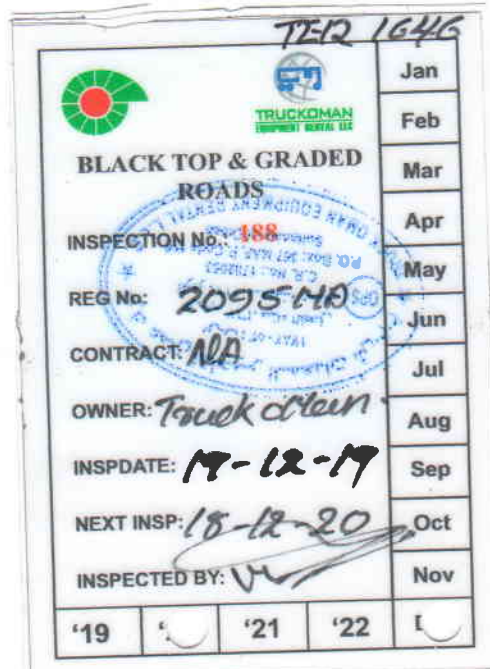 TE-12 1646
TRUCKOMAN
EQUIPMENT RENTAL LLC
BLACK TOP & GRADED
ROADS
INSPECTION No.: 188
REG No: 2095 MA
CONTRACT: N/A
OWNER: Truck Oman
INSPDATE: 19-12-19
NEXT INSP: 18-12-20
INSPECTED BY:
Jan
Feb
Mar
Apr
May
Jun
Jul
Aug
Sep
Oct
Nov
'19
'21
'22
OMAN EQUIPMENT RENTAL
P.O. Box: 367
C.R. No.: 1718053
OPS